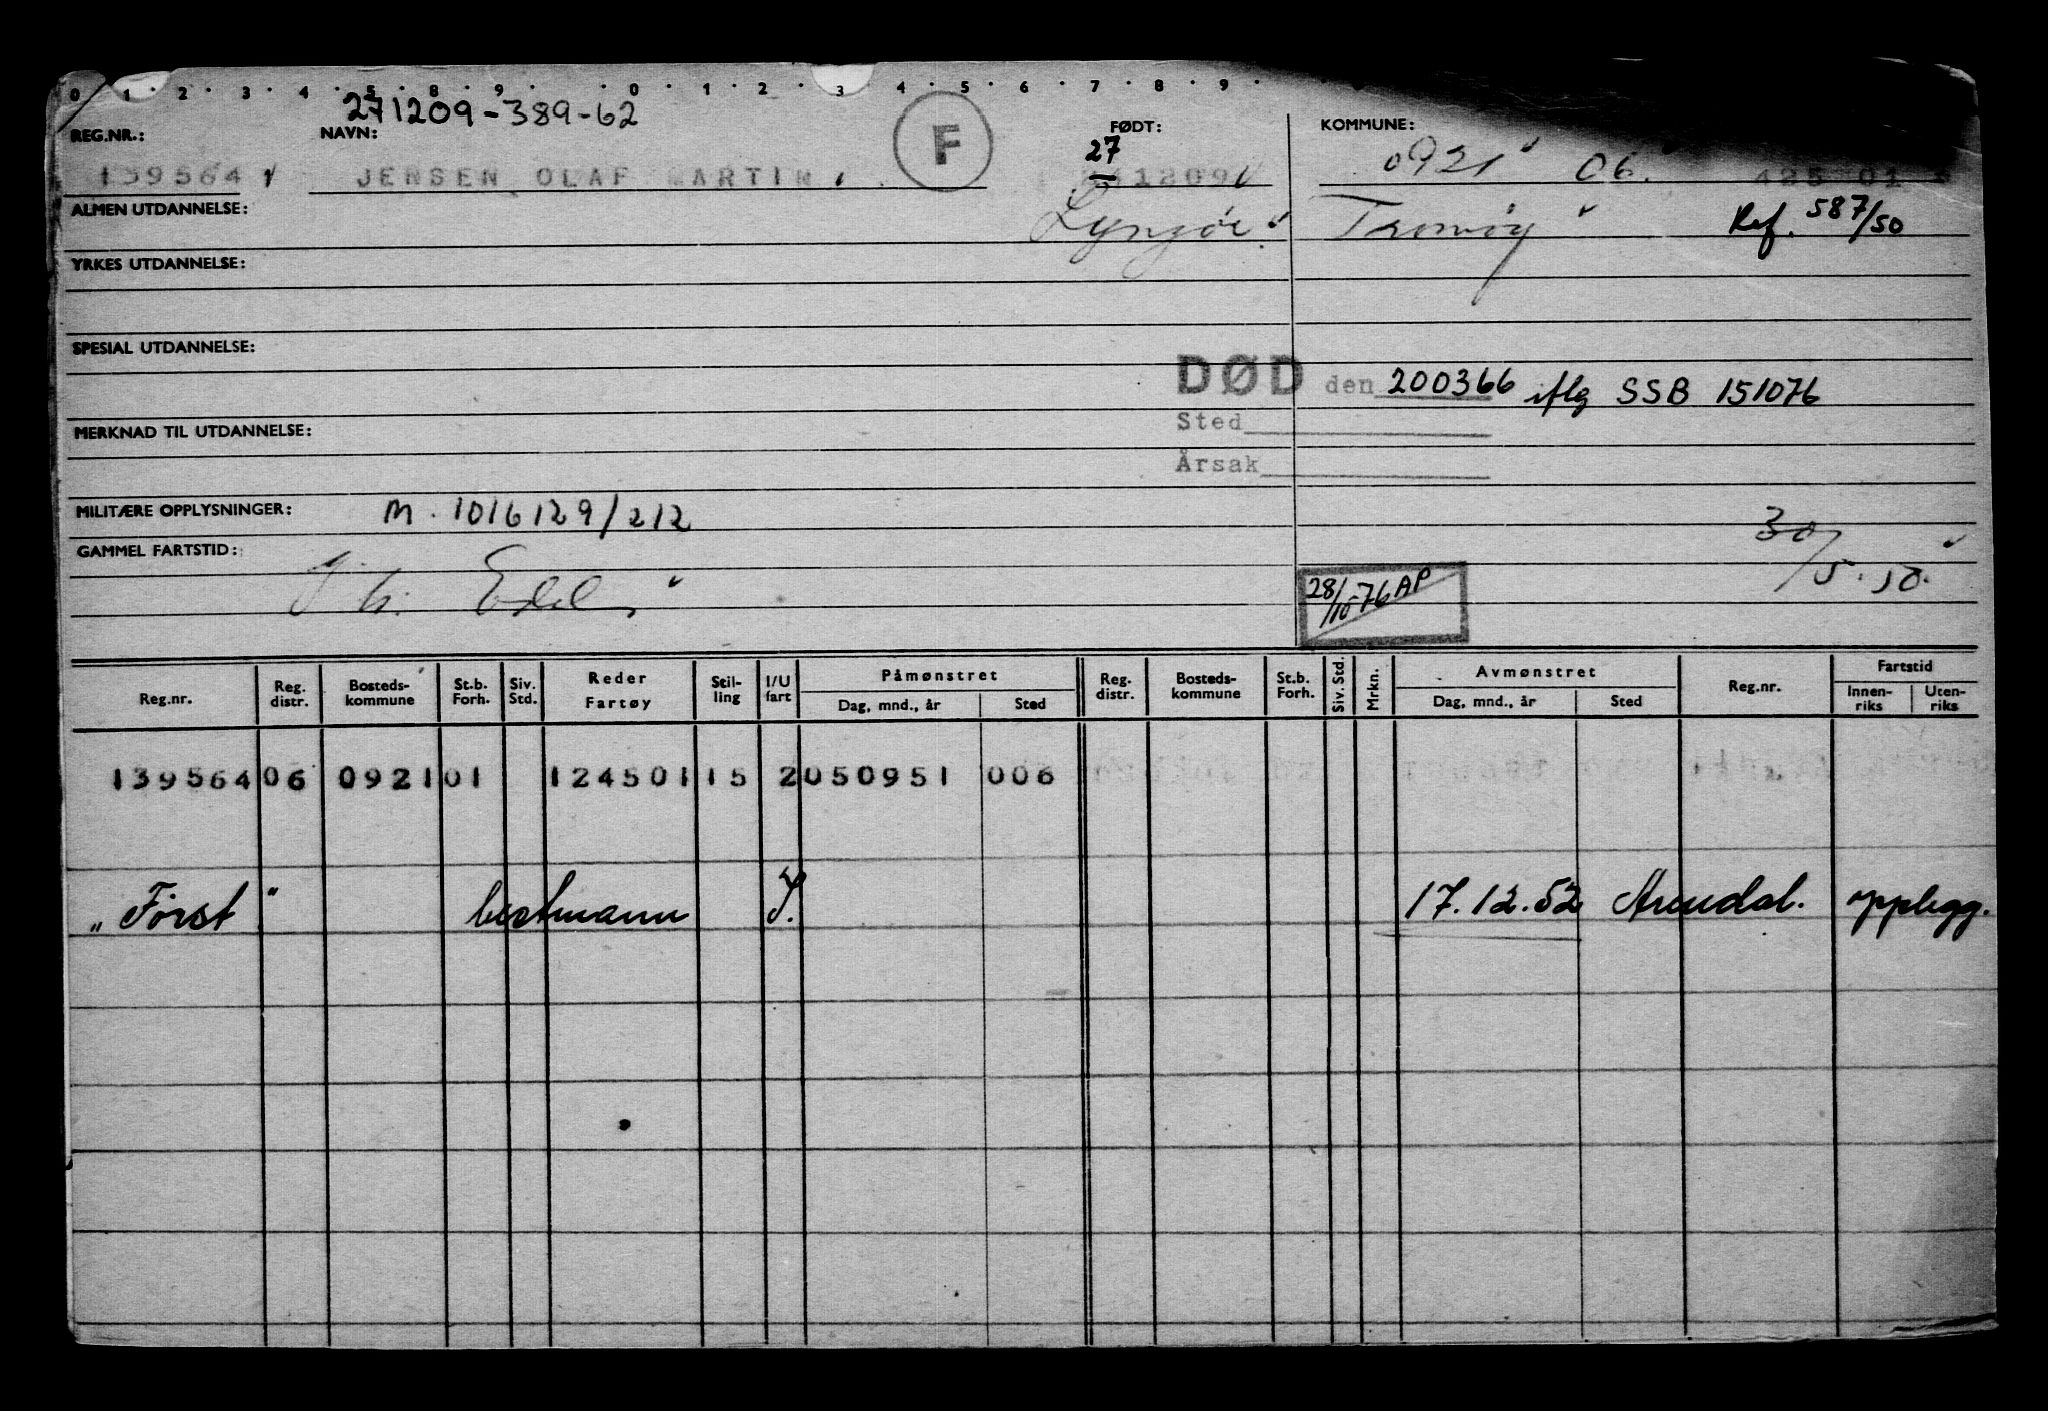 0 1 2 3 4 5 8 9 0 1 2 3 4 5 6 7 8 9
271209-389-62
REG.NR.: NAVN: F FØDT: KOMMUNE:
139564 JENSEN OLAF MARTIN 27 1209 0921 06. 425 01
ALMEN UTDANNELSE: Lyngör Tromöy Ref. 587/50
YRKES UTDANNELSE:
SPESIAL UTDANNELSE:
DØD den 200366 iflg SSB 151076
Sted
MERKNAD TIL UTDANNELSE:
Årsak
MILITÆRE OPPLYSNINGER: M. 1016129/212
GAMMEL FARTSTID: 30/5.50.
28/10-76 AP
Reg.nr. Reg. distr. Bosteds-kommune St.b. Forh. Siv. Std. Reder Fartøy Stil-ling I/U fart Påmønstret Dag, mnd., år Sted Reg. distr. Bosteds-kommune St.b. Forh. Siv. Std. Mrkn. Avmønstret Dag, mnd., år Sted Reg.nr. Fartstid Innen-riks Uten-riks
139564 06 0921 01 124501 15 2 050951 006
"Först" bestmann I. 17.12.52 Arendal. opplegg.